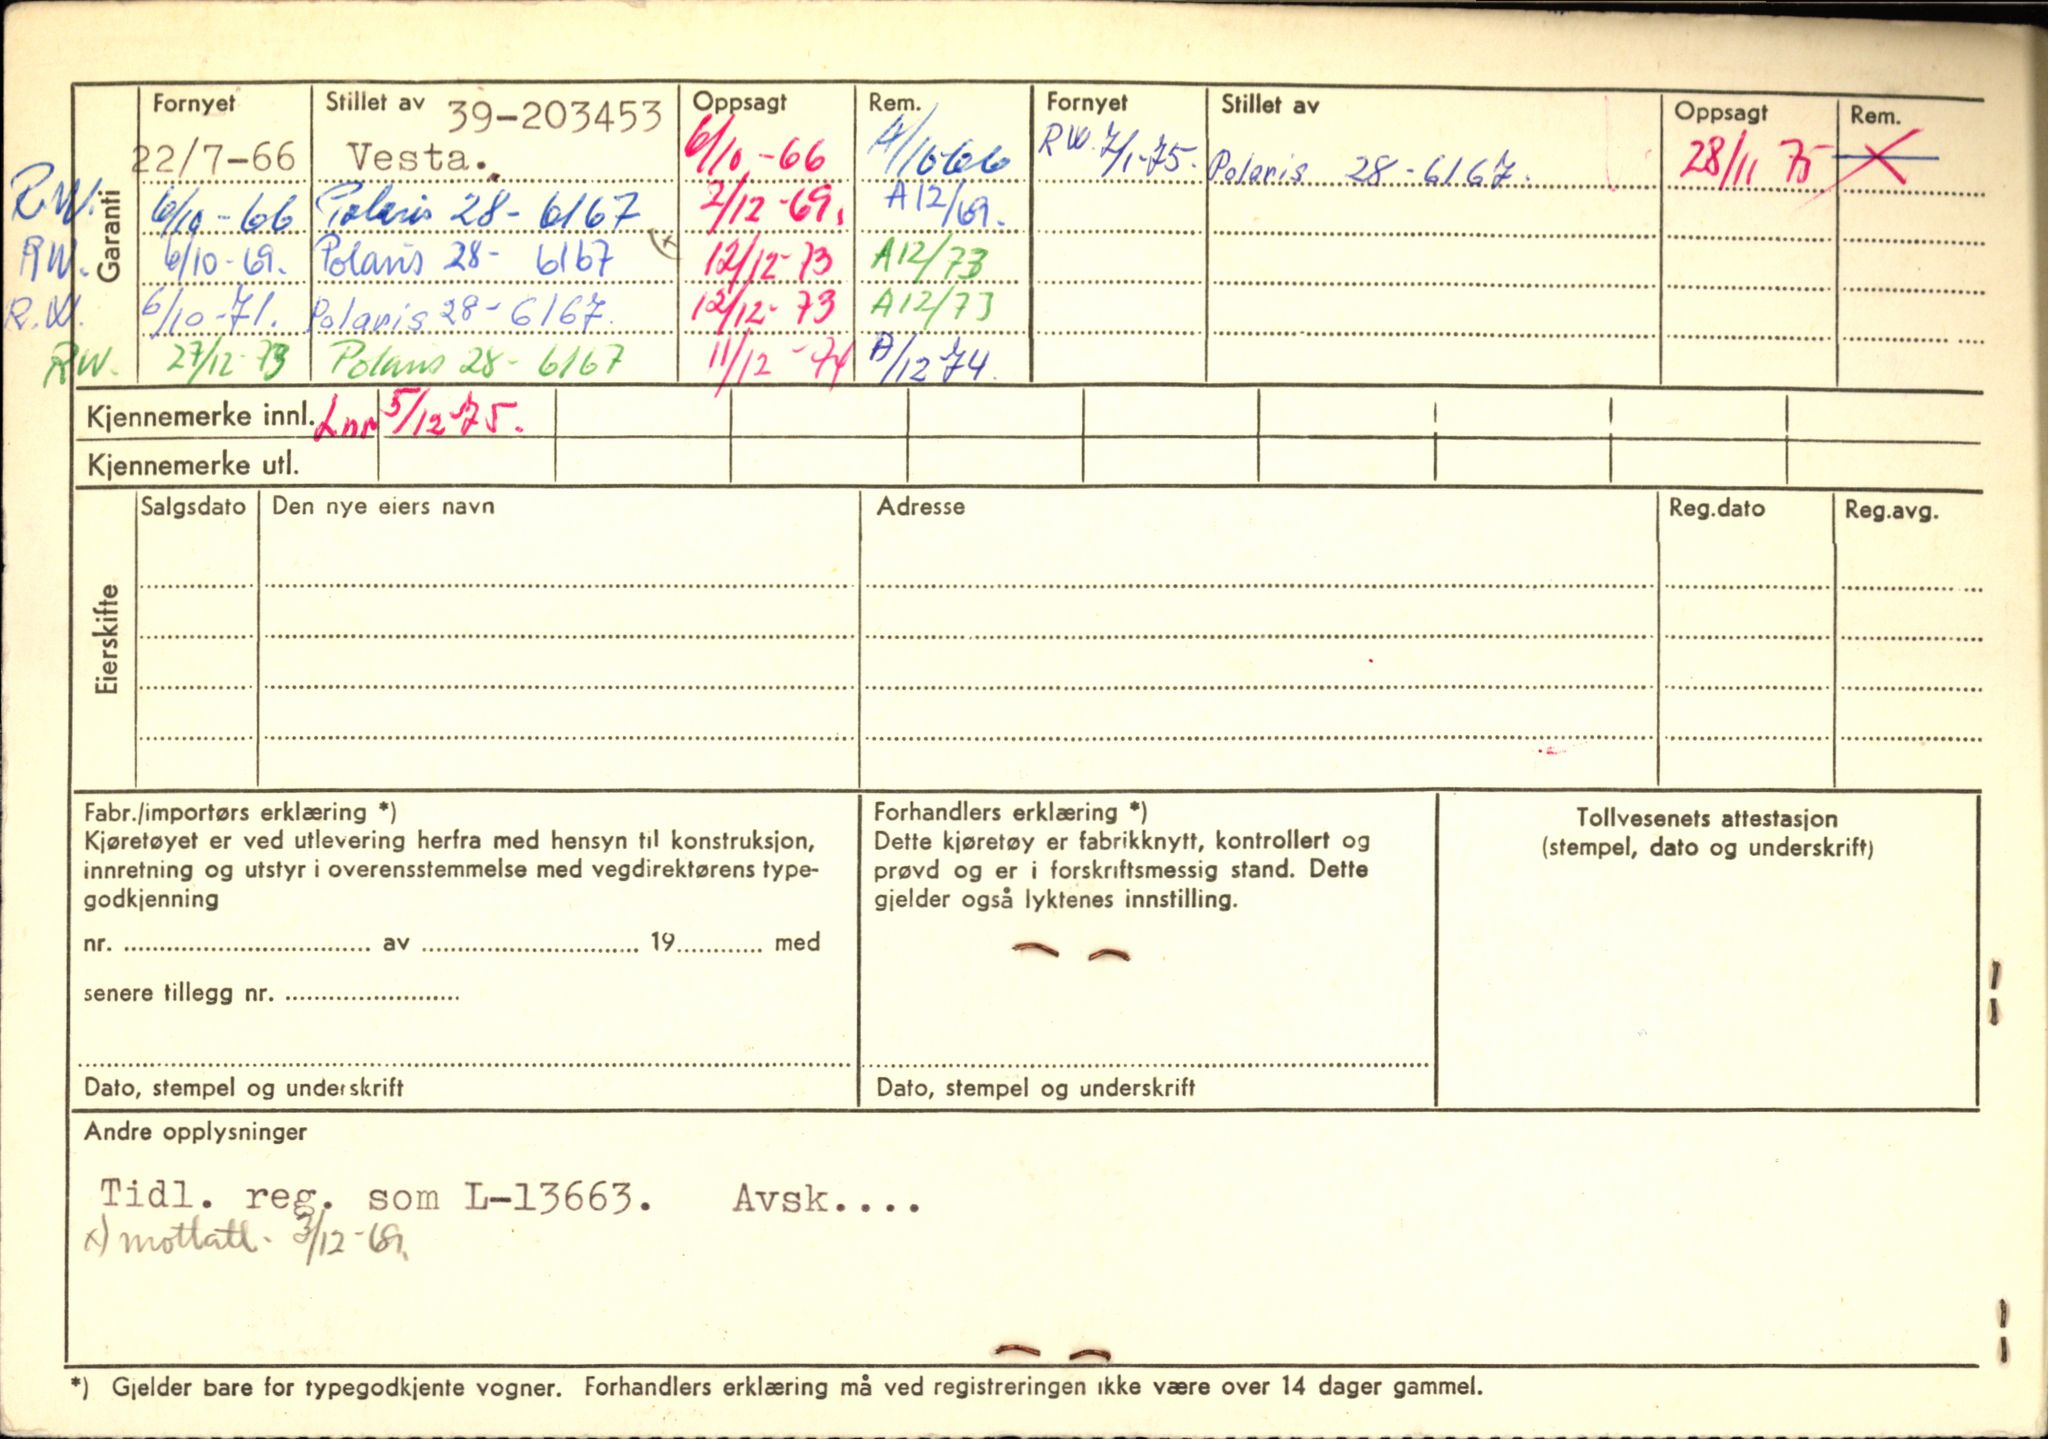 Fornyet Stillet av 39-203453 Oppsagt Rem. Fornyet Stillet av Oppsagt Rem.
22/7-66 Vesta. 6/10-66 A/10-66 RW. 7/1-75. Polaris 28-6167. 28/11 75
R.W. 6/10-66 Polaris 28-6167 2/12-69. A12/69.
RW. 6/10-69. Polaris 28-6167 (x 12/12-73 A12/73
R.W. 6/10-71. Polaris 28-6167. 12/12-73 A12/73
RW. 27/12-73 Polaris 28-6167 11/12-74 A/12 74.
Garanti
Kjennemerke innl. Lnr 5/12-75.
Kjennemerke utl.
Eierskifte
Salgsdato Den nye eiers navn Adresse Reg.dato Reg.avg.
Fabr./importørs erklæring *)
Kjøretøyet er ved utlevering herfra med hensyn til konstruksjon,
innretning og utstyr i overensstemmelse med vegdirektørens type-
godkjenning
nr. .............................. av .......................... 19.......... med
senere tillegg nr. ......................
Dato, stempel og underskrift
Forhandlers erklæring *)
Dette kjøretøy er fabrikknytt, kontrollert og
prøvd og er i forskriftsmessig stand. Dette
gjelder også lyktenes innstilling.
Dato, stempel og underskrift
Tollvesenets attestasjon
(stempel, dato og underskrift)
Andre opplysninger
Tidl. reg. som L-13663. Avsk....
x) mottatt. 3/12-69.
*) Gjelder bare for typegodkjente vogner. Forhandlers erklæring må ved registreringen ikke være over 14 dager gammel.